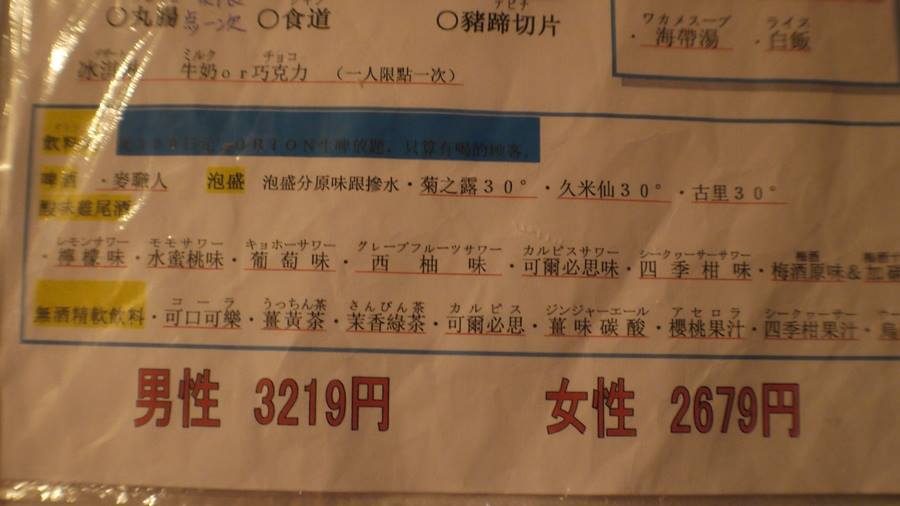 ○丸腸 点一次 ○食道 ○豬蹄切片
ワカメスープ ライス
・海帶湯 ・白飯
ミルク チョコ
牛奶or巧克力 (一人限點一次)
ORION生啤放題,只算有喝的顧客.
啤酒 ・麥職人 泡盛 泡盛分原味跟摻水・菊之露30°・久米仙30°・古里30°
酸味雞尾酒
レモンサワー モモサワー キョホーサワー グレープフルーツサワー カルピスサワー シークヮーサーサワー 梅酒
・檸檬味・水蜜桃味・葡萄味・西柚味・可爾必思味・四季柑味・梅酒原味&加
コーラ うっちん茶 さんぴん茶 カルピス ジンジャーエール アセロラ シークヮーサー
無酒精軟飲料・可口可樂・薑黃茶・茉香綠茶・可爾必思・薑味碳酸・櫻桃果汁・四季柑果汁・烏
男性 3219円 女性 2679円